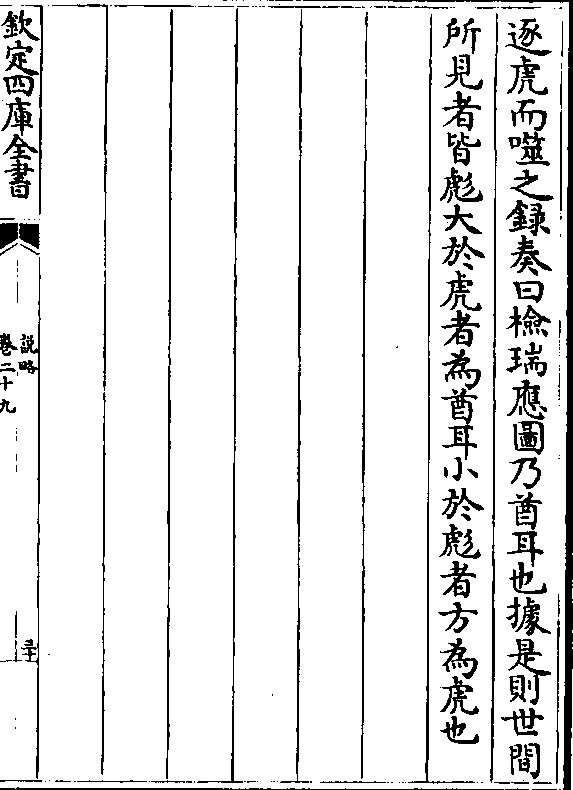 逐虎而噬之録奏曰檢瑞應圖乃酋耳也據是則世間
所見者皆彪大於虎者為酋耳小於彪者方為虎也
欽定四庫全書
説略
卷二十九
三十